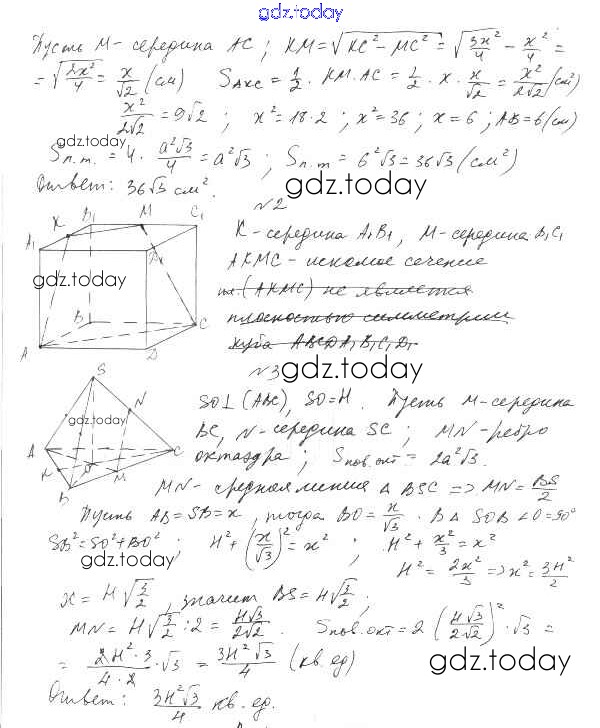 gdz.today
Пусть M - середина AC; KM = √(KC² - MC²) = √(3x²/4 - x²/4) =
= √(2x²/4) = x/√2 (см)   S_AKC = 1/2 · KM · AC = 1/2 · x · x/√2 = x²/2√2 (см²)
x²/2√2 = 9√2 ; x² = 18·2 ; x² = 36 ; x = 6 ; AB = 6 (см)
gdz.today
Sп.т. = 4 · a²√3/4 = a²√3 ; Sп.т = 6²√3 = 36√3 (см²)
Ответ: 36√3 см².
gdz.today
N2
K B₁ M C₁
A₁ D₁
B C
A D
gdz.today
K - середина A₁B₁, M - середина B₁C₁
AKMC - искомое сечение
(AKMC) не является
плоскостью симметрии
куба ABCDA₁B₁C₁D₁
N3
gdz.today
S
N
gdz.today
A O C
K M
B
SO⊥(ABC), SO=H. Пусть M-середина
BC, N-середина SC; MN-ребро
октаэдра; Sпов.окт = 2a²√3.
MN - средняя линия △ BSC => MN = BS/2
Пусть AB=SB=x, тогда BO = x/√3. В △ SOB ∠O=90°
SB² = SO² + BO² ; H² + (x/√3)² = x² ; H² + x²/3 = x²
gdz.today
H² = 2x²/3 => x² = 3H²/2
x = H√(3/2), значит BS = H√(3/2);
MN = H√(3/2) : 2 = H√3/2√2. Sпов.окт = 2(H√3/2√2)² · √3 =
= 2H²·3/4·2 · √3 = 3H²√3/4 (кв. ед)
gdz.today
Ответ: 3H²√3/4 кв. ед.